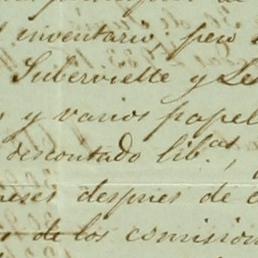 inventario; pero
Subervielle y Le
y varios papel
descontado lib.as,
meses despues de
de los comision